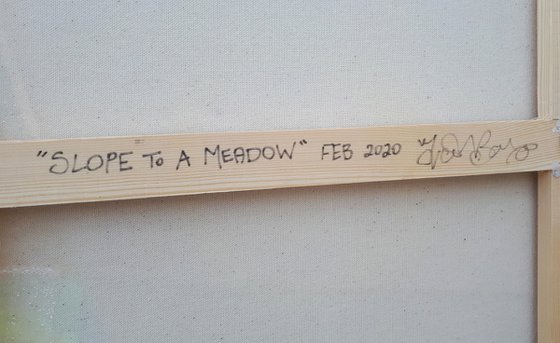 "SLOPE TO A MEADOW" FEB 2020